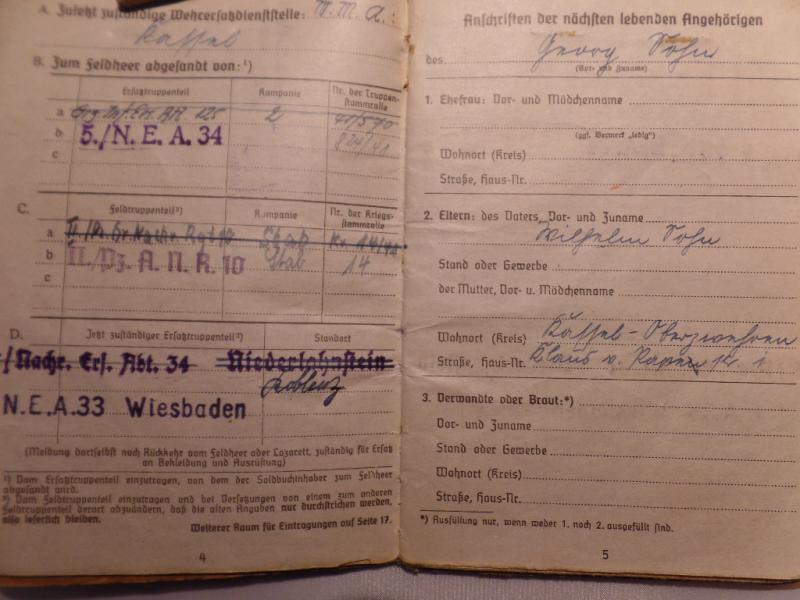 A. Zuletzt zuständige Wehrersatzdienststelle: W. M. A.:
Kassel
B. Zum Feldheer abgesandt von:¹)
Ersatztruppenteil
Kompanie
Nr. der Truppen-
stammrolle
a 2
b 5./N. E. A. 34
c
C. Feldtruppenteil²)
Kompanie
Nr. der Kriegs-
stammrolle
a Stab
b II./Pz. A. N. R. 10 Stab 14
c
D. Jetzt zuständiger Ersatztruppenteil²)
Standort
/Nachr. Ers. Abt. 34 Niederlahnstein
Koblenz
N.E.A.33 Wiesbaden
(Meldung dortselbst nach Rückkehr vom Feldheer oder Lazarett, zuständig für Ersatz
an Bekleidung und Ausrüstung)
¹) Vom Ersatztruppenteil einzutragen, von dem der Soldbuchinhaber zum Feldheer
abgesandt wird.
²) Vom Feldtruppenteil einzutragen und bei Versetzungen von einem zum anderen
Feldtruppenteil derart abzuändern, daß die alten Angaben nur durchstrichen werden,
also leserlich bleiben.
Weiterer Raum für Eintragungen auf Seite 17.
4
Anschriften der nächsten lebenden Angehörigen
des Georg Sohn
(Vor- und Zuname)
1. Ehefrau: Vor- und Mädchenname
(ggf. Vermerk „ledig")
Wohnort (Kreis)
Straße, Haus-Nr.
2. Eltern: des Vaters, Vor- und Zuname
Wilhelm Sohn
Stand oder Gewerbe
der Mutter, Vor- u. Mädchenname
Wohnort (Kreis) Kassel-Oberzwehren
Straße, Haus-Nr.
3. Verwandte oder Braut:*)
Vor- und Zuname
Stand oder Gewerbe
Wohnort (Kreis)
Straße, Haus-Nr.
*) Ausfüllung nur, wenn weder 1. noch 2. ausgefüllt sind.
5